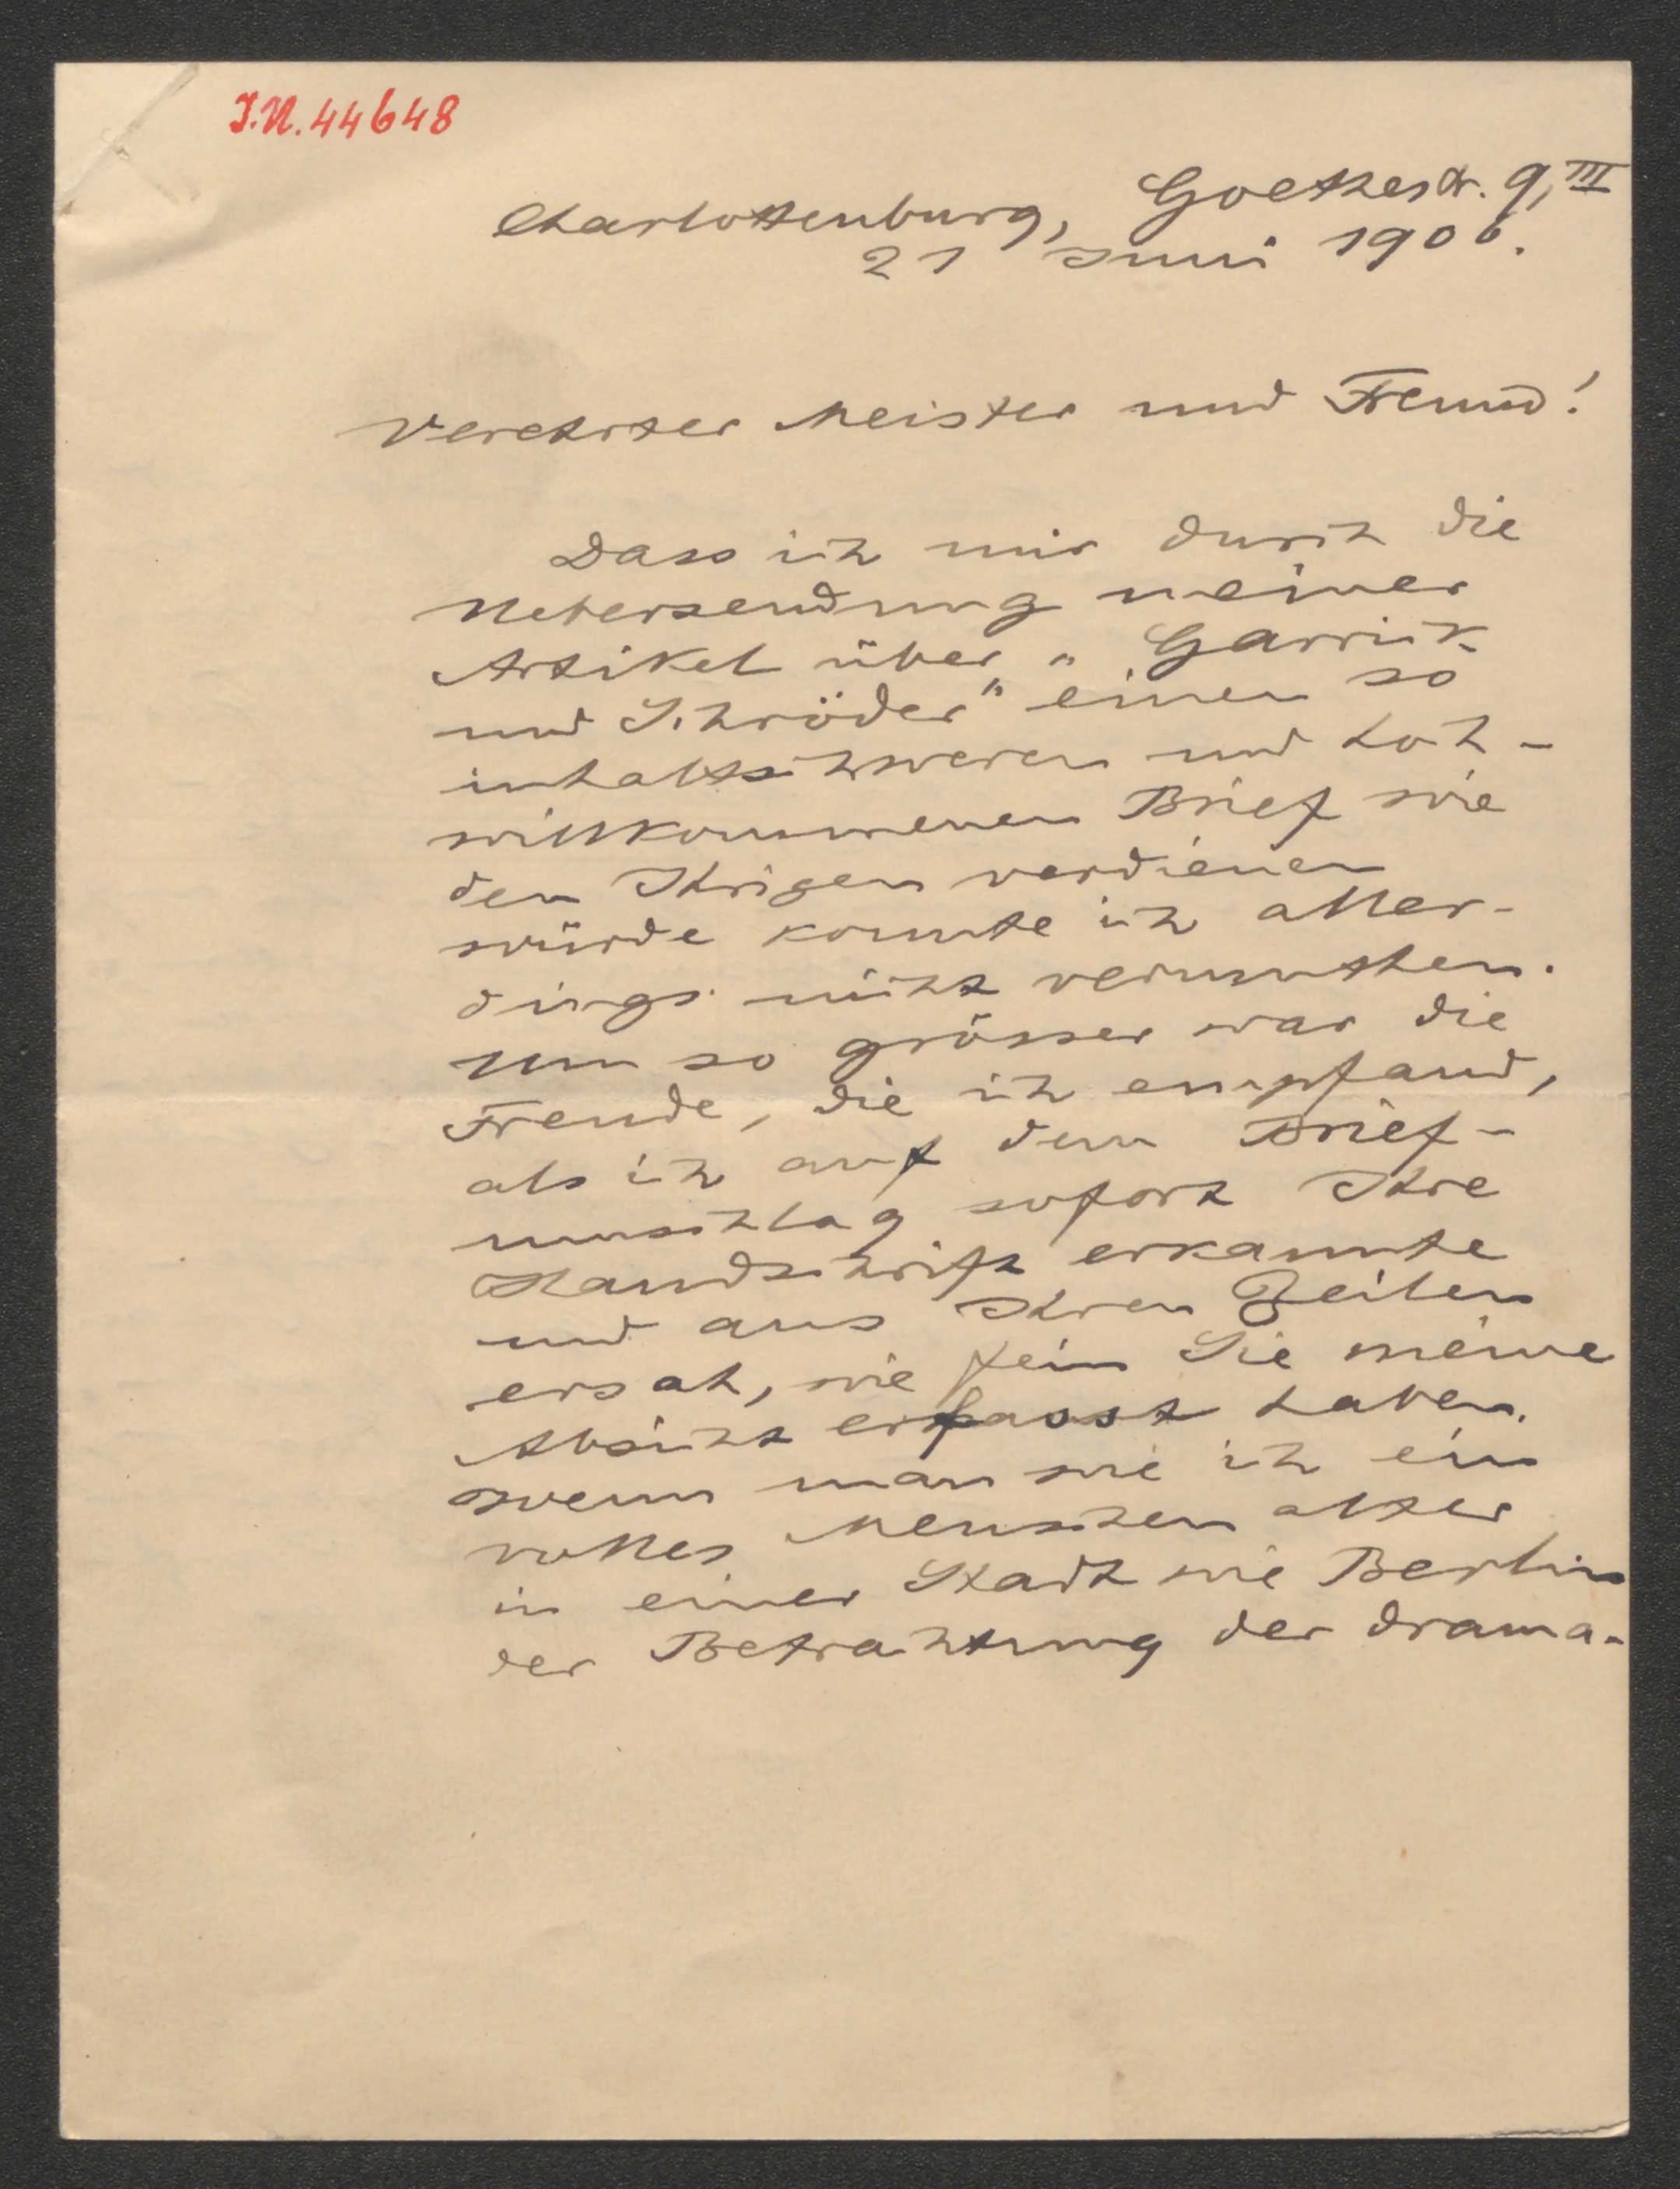 I.N. 44648
Charlottenburg, Goethestr. 9, III
21 Juni 1906.
Verehrter Meister und Freund!
Dass ich mir durch die
Uebersendung meiner
Artikel über „Garrick
und Schröder" einen so
inhaltsschweren und hoch-
willkommenen Brief wie
den Ihrigen verdienen
würde konnte ich aller-
dings nicht vermuthen.
Um so grösser war die
Freude, die ich empfand,
als ich auf dem Brief-
umschlag sofort Ihre
Handschrift erkannte
und aus Ihren Zeilen
ersah, wie fein Sie meine
Absicht erfasst haben.
Wenn man wie ich ein
volles Menschenalter
in einer Stadt wie Berlin
der Betrachtung der drama-